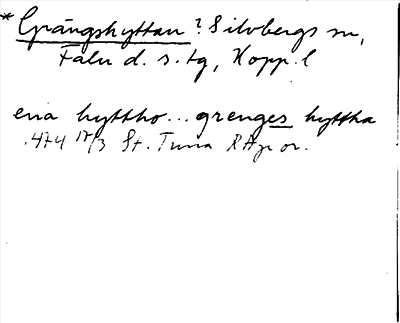 * Grängshyttan ? Silvbergs sn,
Falu d. s. tg, Kopp. l
ena hyttho... grenges hyttha
.474 17/3 St. Tuna RAp or.